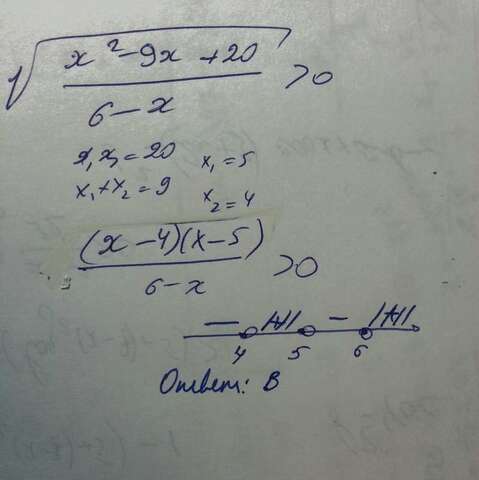 √(x² - 9x + 20) / (6 - x) > 0
x₁x₂ = 20 x₁ = 5
x₁ + x₂ = 9 x₂ = 4
(x - 4)(x - 5) / (6 - x) > 0
− + − +
4 5 6
Ответ: В